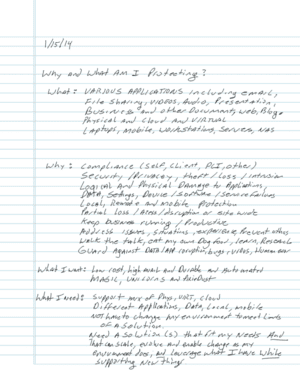 1/15/14
Why and What Am I Protecting?
What: VARIOUS APPLICATIONS including email,
File Sharing, VIDEOS, Audio, Presentation,
Business and other Documents, Web, Blog
Physical and Cloud and VIRTUAL
Laptops, Mobile, Workstations, Servers, NAS
Why: Compliance (Self, Client, PCI, other)
Security / Privacy, theft / Loss / intrusion
Logical and Physical Damage to Applications,
DATA, Settings, Device / Software / Service Failures
Local, Remote and mobile Protection
Partial loss / Area / disruption or site wide
Keep business running / Productive
Address issues, situations, experience, Prevent others
Walk the talk, eat my own Dog food, learn, Research
Guard Against DATA corruption, bugs, virus, Human error
What I want: Low cost, high and Durable and Automated
MAGIC, Unicorns and PixieDust
What I Need: Support mix of Phy, VIRT, Cloud
Different Applications, Data, Local, mobile
Not have to change my environment to meet limits
of a solution.
Need A Solution(s) that fit my needs And
That can scale, evolve and enable change as my
environment does, And leverage what I have while
supporting New things